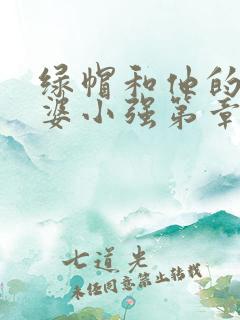 绿帽和他的
婆小强第章
七道光
未经同意禁止转载